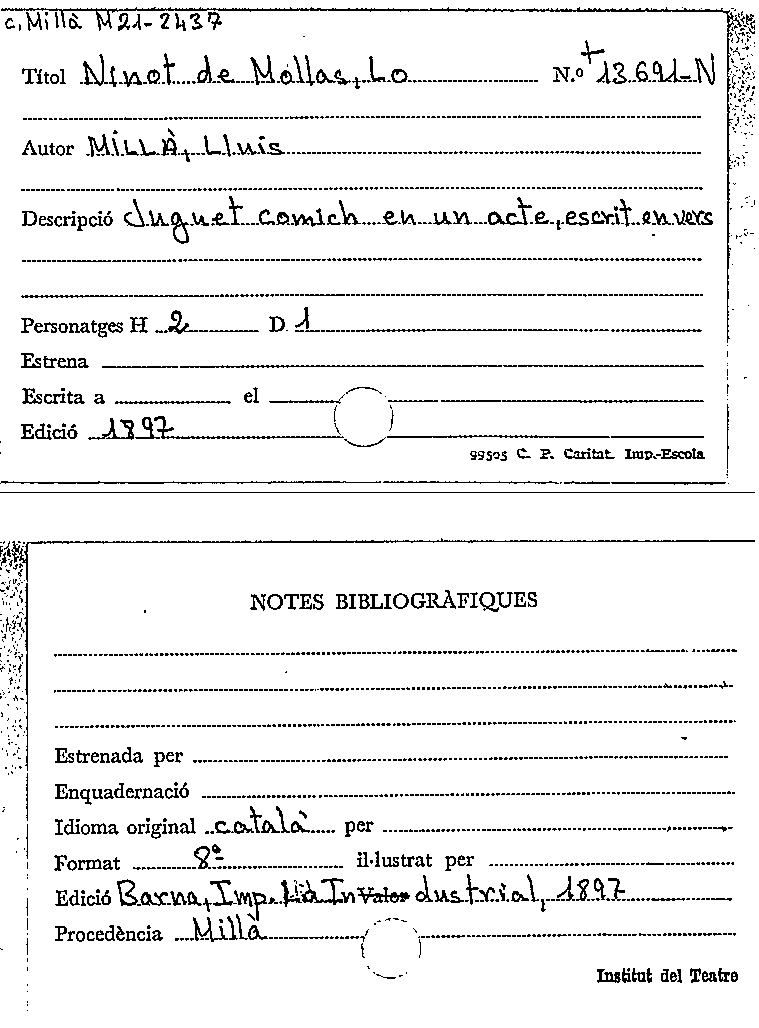 c. Millà M21-2437
Títol Ninot de Mollas, Lo N.º +13.691-N
Autor MILLÀ, Lluis
Descripció Juguet comich en un acte, escrit en vers
Personatges H 2 D 1
Estrena
Escrita a el
Edició 1897
99505 C. P. Caritat. Imp.-Escola
NOTES BIBLIOGRÀFIQUES
Estrenada per
Enquadernació
Idioma original català per
Format 8º il·lustrat per
Edició Barna, Imp. La Industrial, 1897
Procedència Millà
Institut del Teatre